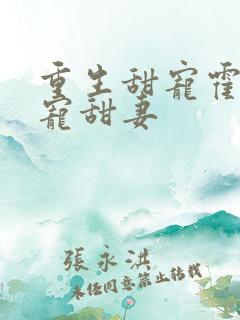 重生甜寵霍
寵甜妻
張永洪
未经同意禁止转载